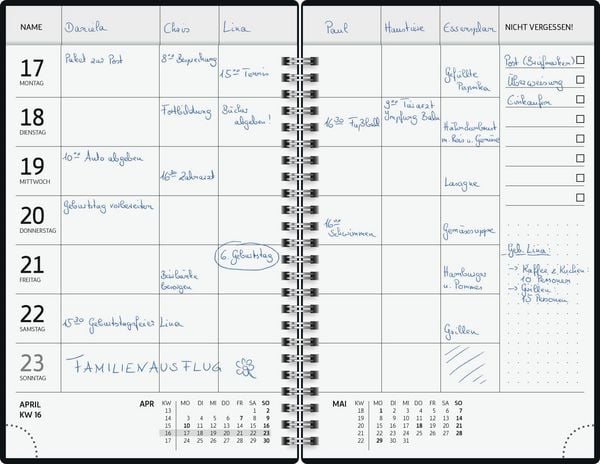 NAME Daniela Chris Lina Paul Haustiere Essensplan NICHT VERGESSEN!
17 MONTAG
Paket zur Post
8⁰⁰ Besprechung
15⁰⁰ Tennis
Gefüllte
Paprika
Post (Briefmarken)
Überweisung
Einkaufen
18 DIENSTAG
Fortbildung
Bücher
abgeben!
16³⁰ Fußball
9⁰⁰ Tierarzt
Impfung
Hähnchenbrust
m. Reis u. Gemüse
19 MITTWOCH
10⁰⁰ Auto abgeben
16³⁰ Zahnarzt
Lasagne
20 DONNERSTAG
Geburtstag vorbereiten
16⁰⁰
Schwimmen
Gemüsesuppe
21 FREITAG
Bierbänke
besorgen
6. Geburtstag
Hamburger
u. Pommes
Geb. Lina:
→ Kaffee & Kuchen
10 Personen
→ Grillen
15 Personen
22 SAMSTAG
15³⁰ Geburtstagsfeier Lina
Grillen
23 SONNTAG
FAMILIENAUSFLUG
APRIL
KW 16
APR KW MO DI MI DO FR SA SO
13 1 2
14 3 4 5 6 7 8 9
15 10 11 12 13 14 15 16
16 17 18 19 20 21 22 23
17 24 25 26 27 28 29 30
MAI KW MO DI MI DO FR SA SO
18 1 2 3 4 5 6 7
19 8 9 10 11 12 13 14
20 15 16 17 18 19 20 21
21 22 23 24 25 26 27 28
22 29 30 31